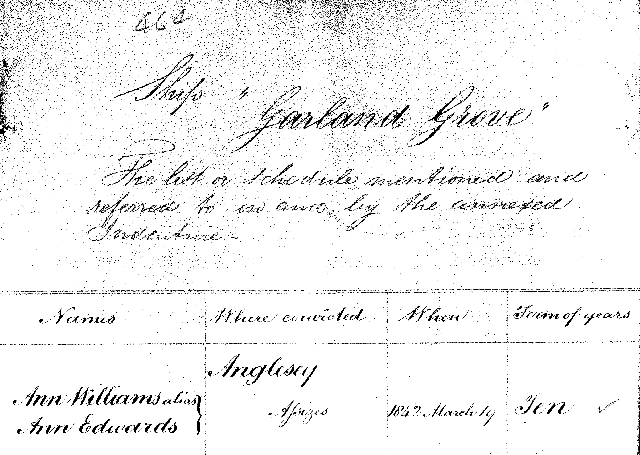 464
Ship "Garland Grove"
The list or schedule mentioned and
referred to in and by the annexed
Indenture
Names Where convicted When Term of years
Anglesey
Ann Williams alias
Ann Edwards } Assizes 1842 March 19 Ten ✓